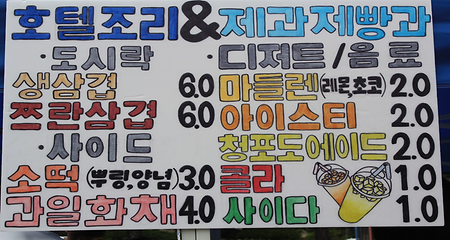 호텔조리&제과제빵과
·도시락 ·디저트/음료
생삼겹 6.0 마들렌(레몬,초코) 2.0
쯔란삼겹 6.0 아이스티 2.0
·사이드 청포도에이드 2.0
소떡(뿌링,양념) 3.0 콜라 1.0
과일화채 4.0 사이다 1.0